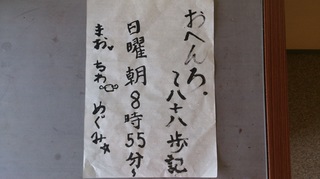 おへんろ。
〜八十八歩記
日曜朝8時55分〜
まお ちわ めぐみ☆